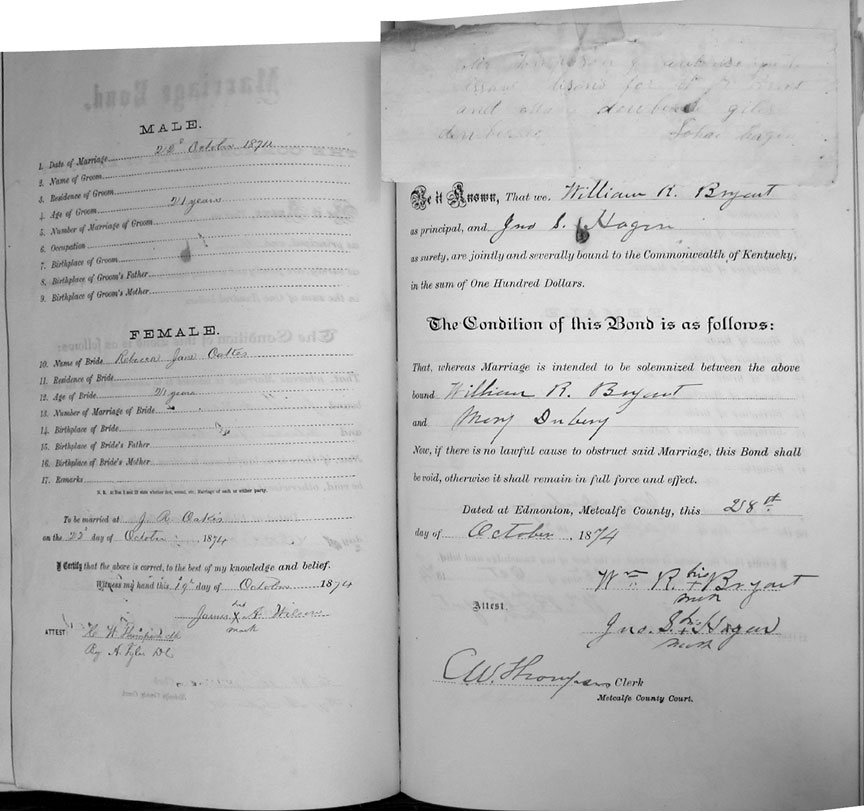 MALE.
1. Date of Marriage 22d October 1874
2. Name of Groom
3. Residence of Groom
4. Age of Groom 21 years
5. Number of Marriage of Groom
6. Occupation
7. Birthplace of Groom
8. Birthplace of Groom's Father
9. Birthplace of Groom's Mother
FEMALE.
10. Name of Bride Rebecca Jane Oakes
11. Residence of Bride
12. Age of Bride 21 years
13. Number of Marriage of Bride
14. Birthplace of Bride
15. Birthplace of Bride's Father
16. Birthplace of Bride's Mother
17. Remarks
N. B. At Nos 5 and 13 state whether first, second, etc., Marriage of each or either party.
To be married at J. R. Oakes
on the 22d day of October, 1874
I Certify that the above is correct, to the best of my knowledge and belief.
Witness my hand this 19 day of October 1874
his
James X A. Wilson
mark
ATTEST:
By A. Tyler D C
for
and
John
Be it Known, That we, William R. Bryant
as principal, and Jno S. Hagen
as surety, are jointly and severally bound to the Commonwealth of Kentucky,
in the sum of One Hundred Dollars.
The Condition of this Bond is as follows:
That, whereas Marriage is intended to be solemnized between the above
bound William R. Bryant
and Mary
Now, if there is no lawful cause to obstruct said Marriage, this Bond shall
be void, otherwise it shall remain in full force and effect.
Dated at Edmonton, Metcalfe County, this 28th
day of October, 1874
his
Wm R. + Bryant
mark
Attest.
his
Jno. S. + Hagen
mark
C W. Thompson Clerk
Metcalfe County Court.